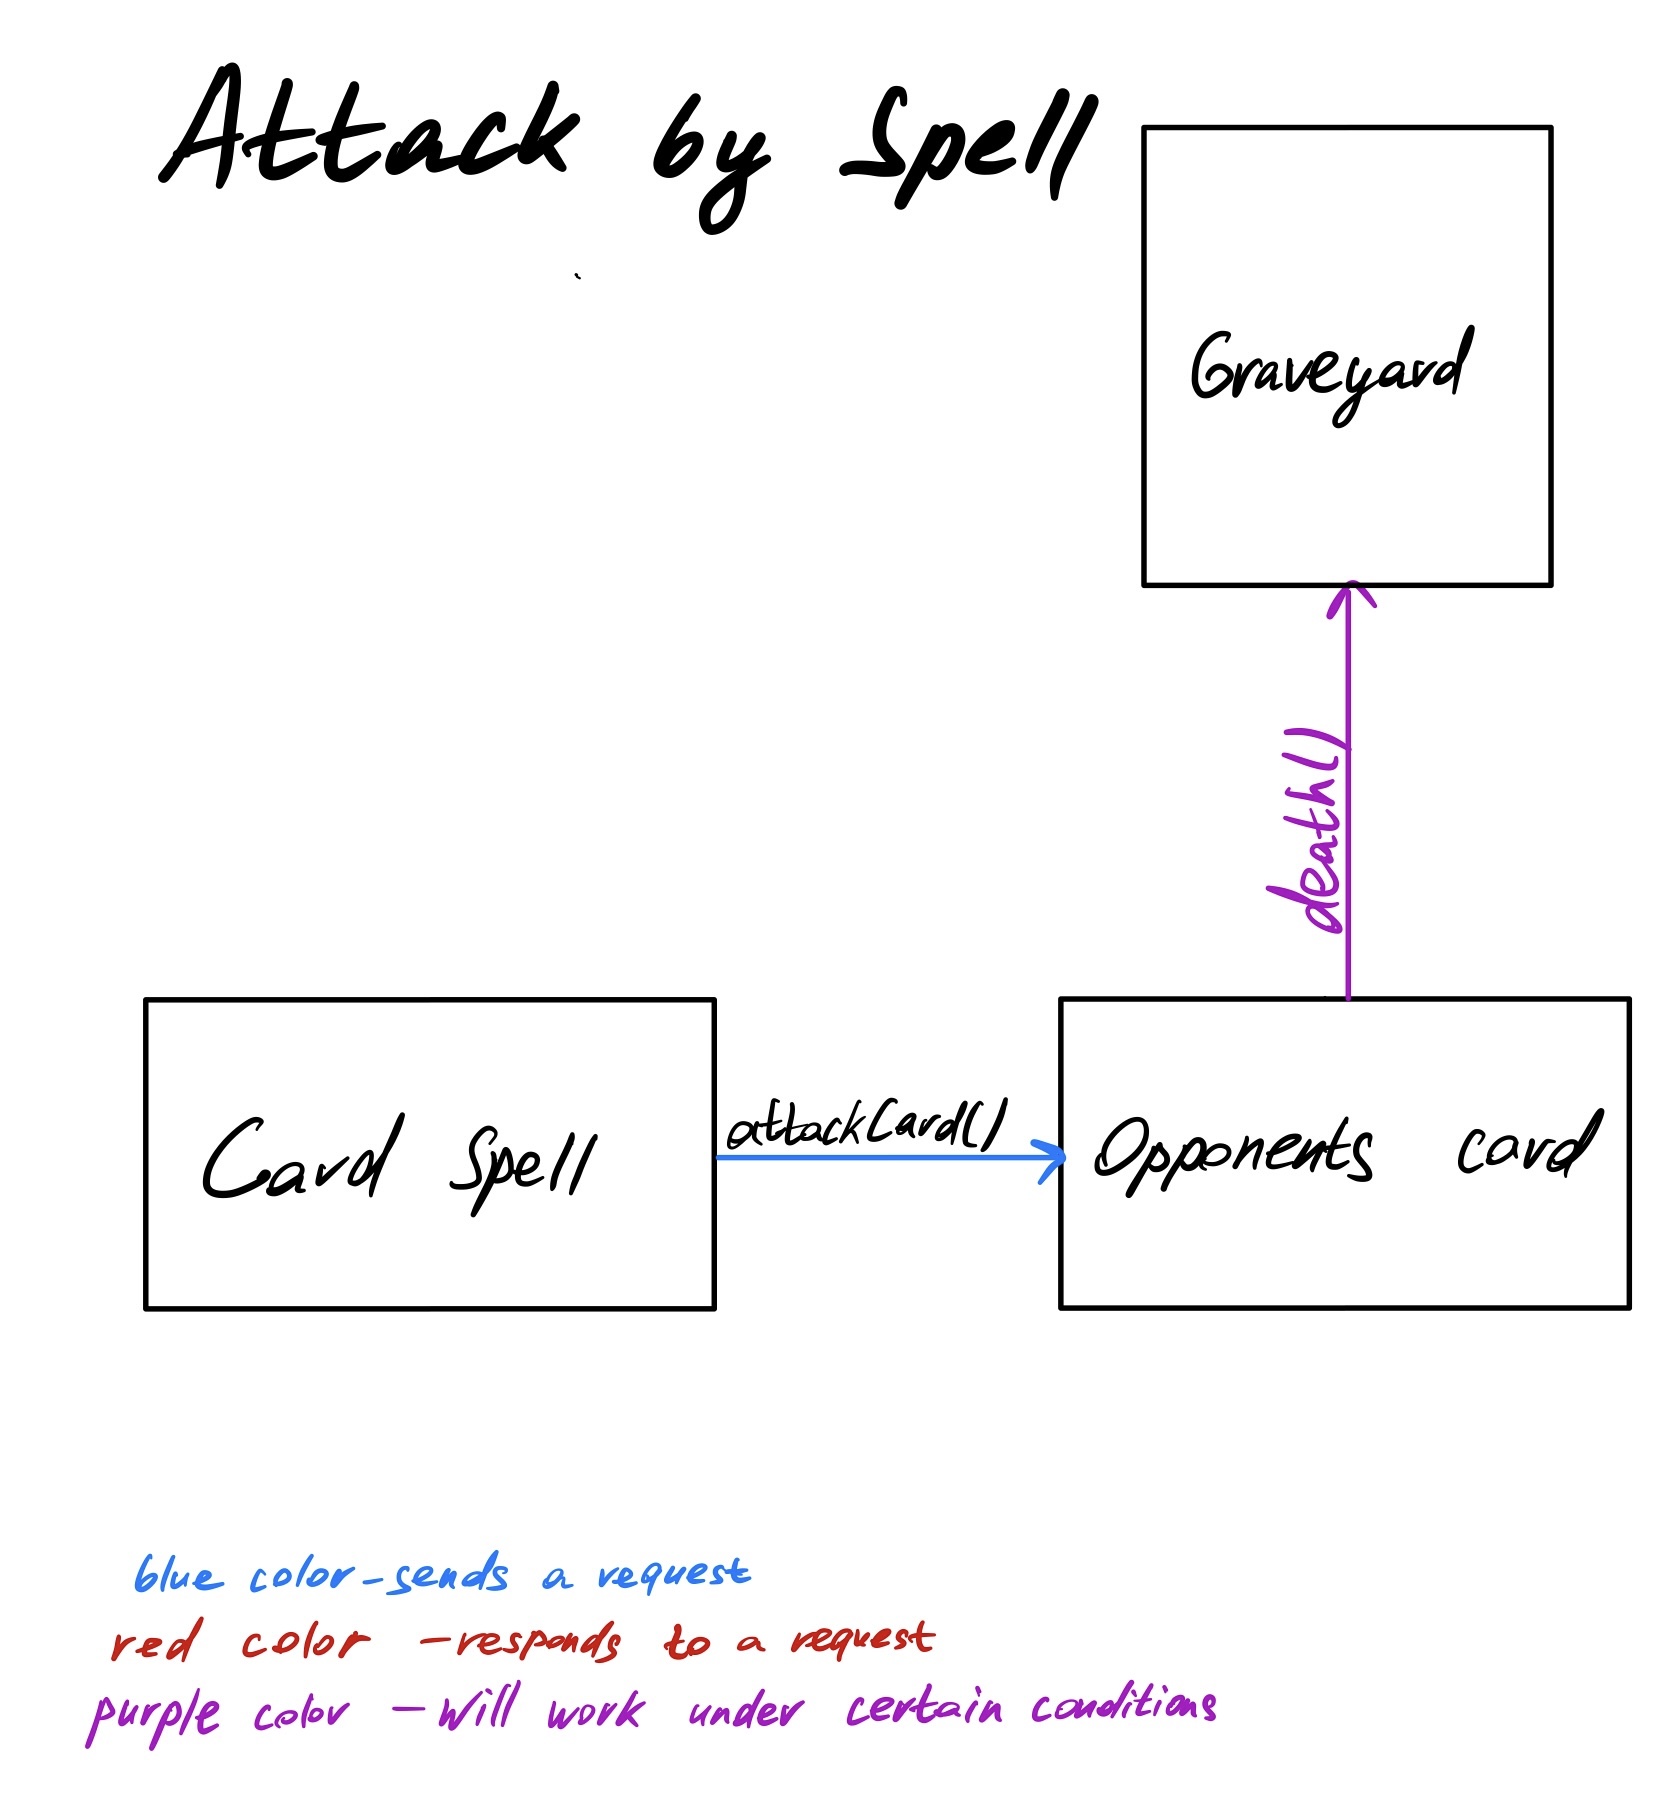 Attack by Spell
Graveyard
death()
Card Spell
attackCard()
Opponents card
blue color - sends a request
red color - responds to a request
purple color - will work under certain conditions